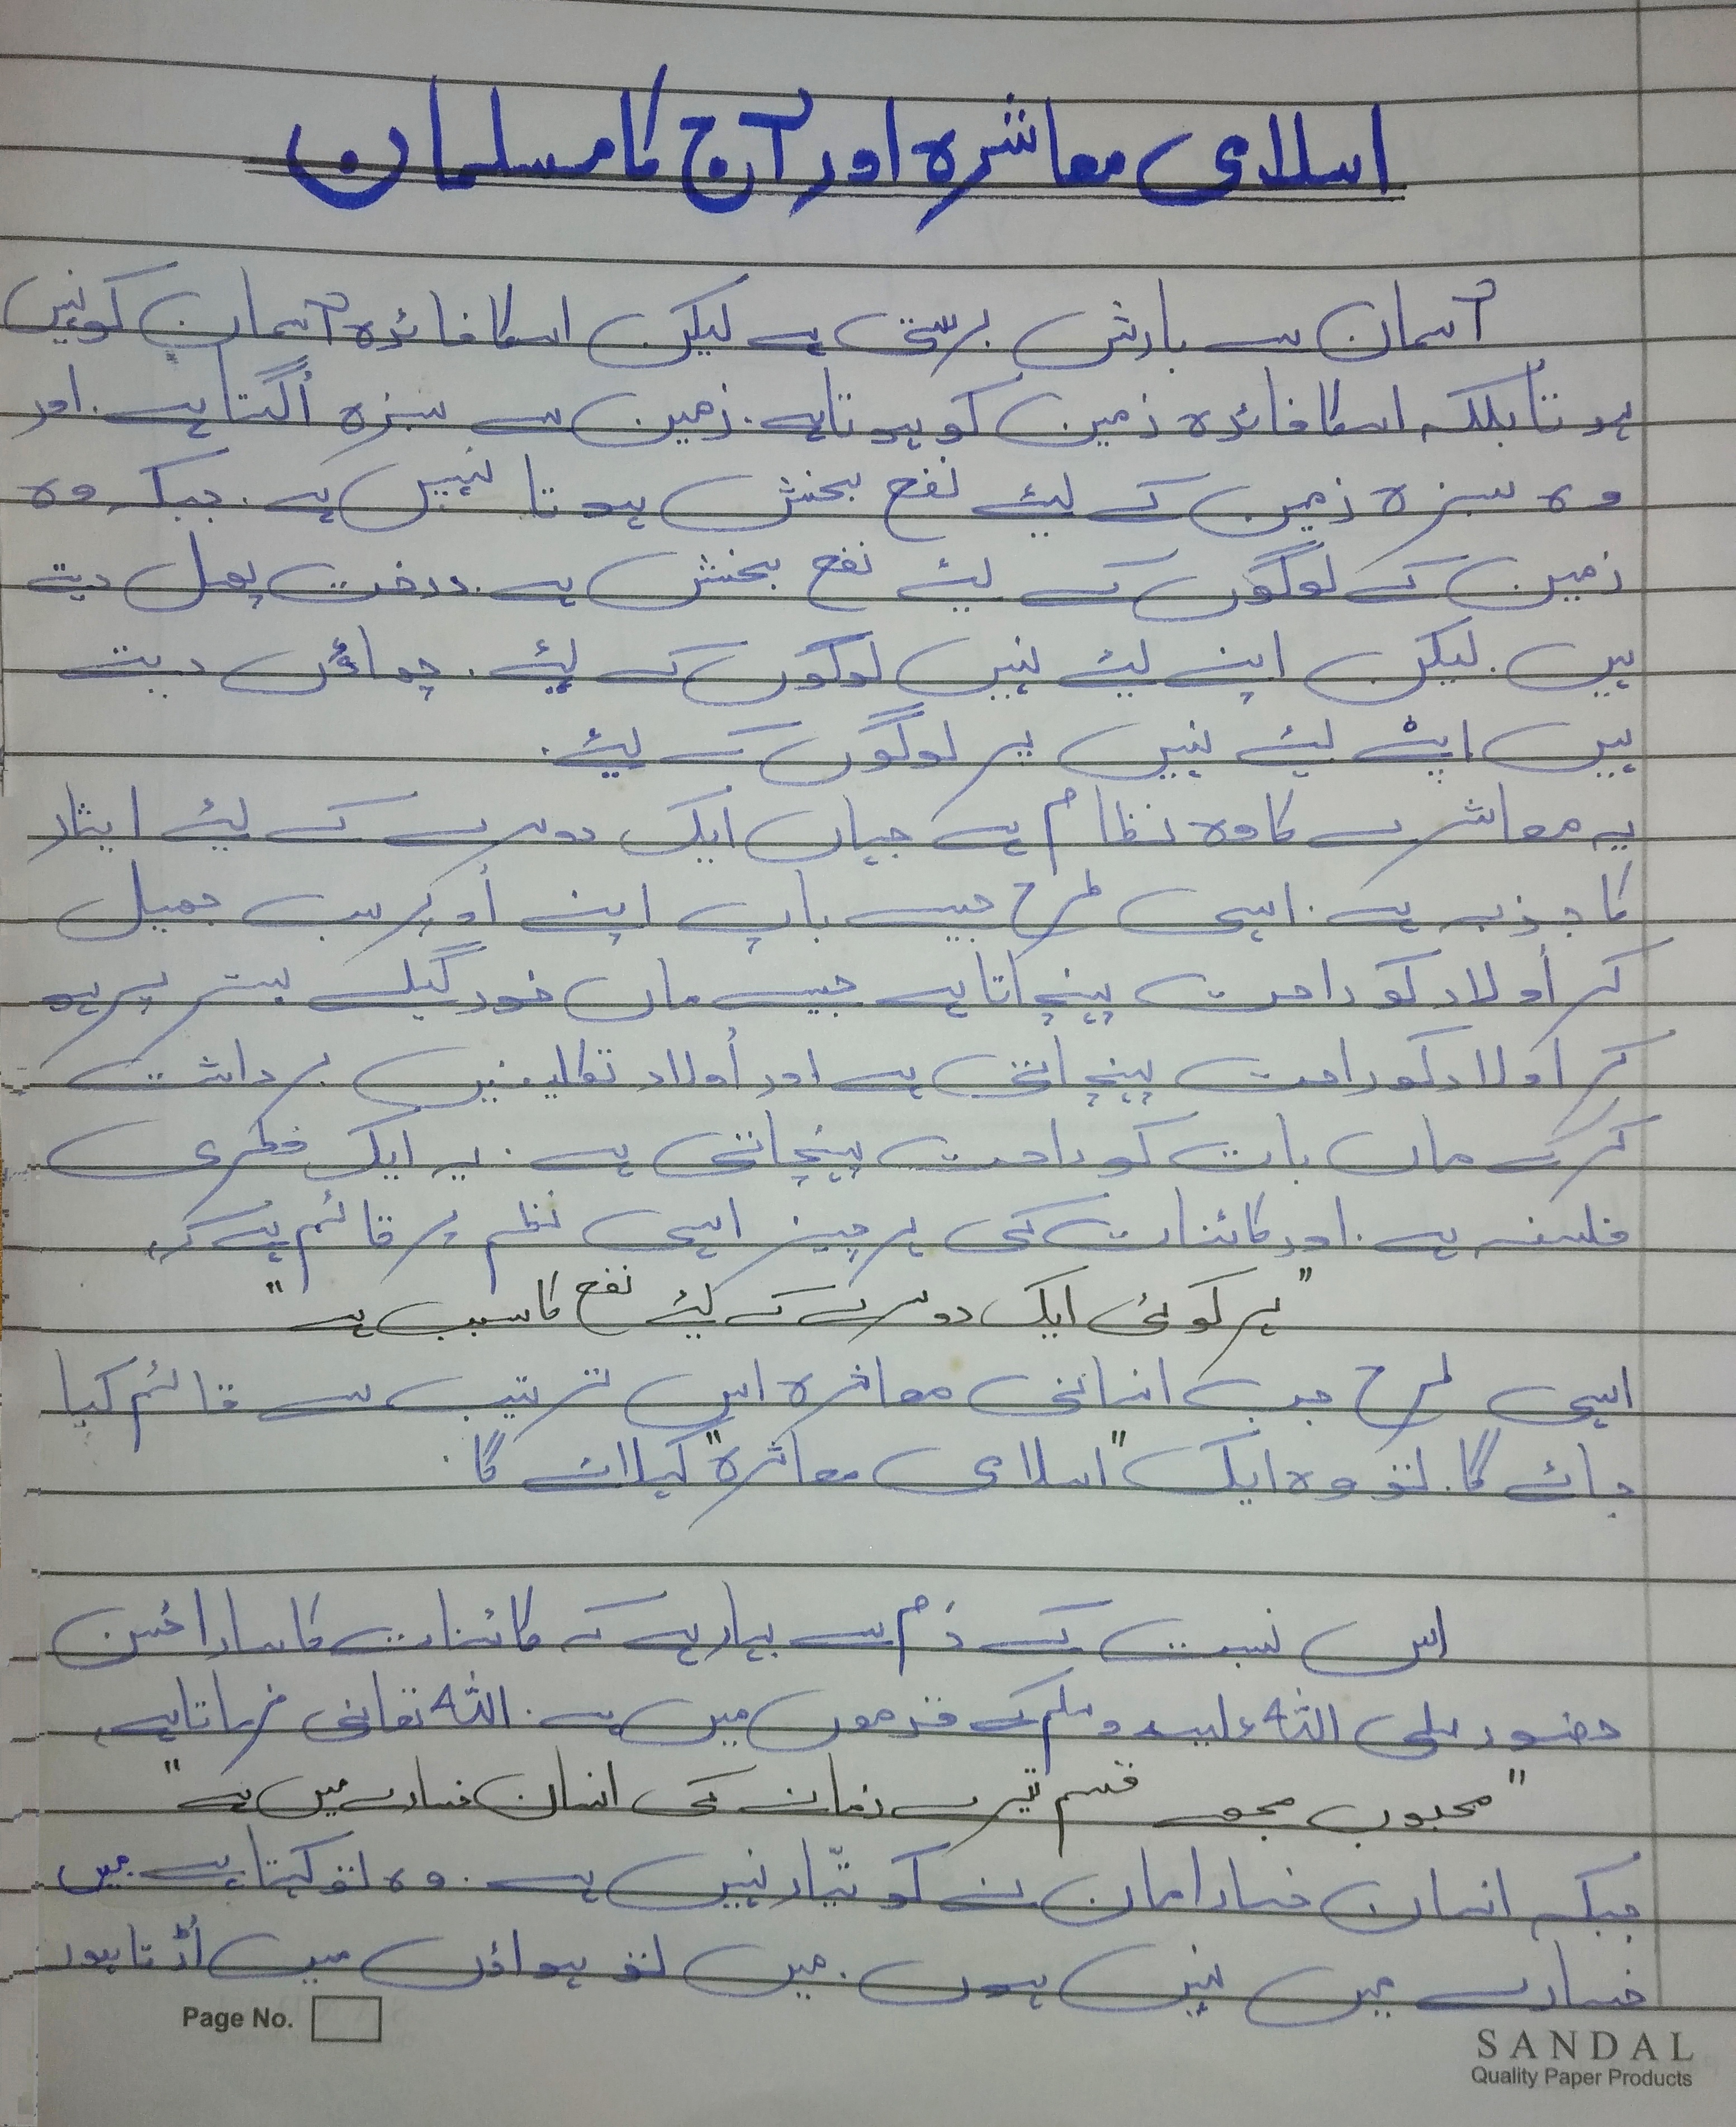 اسلامی معاشرہ اور آج کا مسلمان
آسمان سے بارش برستی ہے لیکن اسکا فائدہ آسمان کو نہیں
ہوتا بلکہ اسکا فائدہ زمین کو ہوتا ہے. زمین سے سبزہ اُگتا ہے. اور
وہ سبزہ زمین کے لیئے نفع بخش ہوتا نہیں ہے. جبکہ وہ
زمین کے لوگوں کے لیئے نفع بخش ہے. درخت پھل دیتے
ہیں. لیکن اپنے لیئے نہیں لوگوں کے لیئے. چھاؤں دیتے
ہیں اپنے لیئے نہیں پر لوگوں کے لیئے.
یہ معاشرے کا وہ نظام ہے جہاں ایک دوسرے کے لیئے ایثار
کا جذبہ ہے. اسی طرح جیسے باپ اپنے اُوپر سب جھیل
کر اُولاد کو راحت پہنچاتا ہے جیسے ماں خود گیلے بستر پر ہو
کر اُولاد کو راحت پہنچاتی ہے اور اُولاد تکالیفیں برداشت
کر کے ماں باپ کو راحت پہنچاتی ہے. یہ ایک فطری
فلسفہ ہے. اور کائنات کی ہر چیز اسی نظم پر قائم ہے کہ
"ہر کوئی ایک دوسرے کے لیئے نفع کا سبب ہے"
اسی طرح جب انسانی معاشرہ اس ترتیب سے قائم کیا
جائے گا. تو وہ ایک "اسلامی معاشرہ" کہلائے گا.
اس نسبت کے دَم سے بہار ہے کہ کائنات کا سارا حُسن
حضور صلی اللہ علیہ وسلم کے قدموں میں ہے. اللہ تعالیٰ فرماتا ہے
"محبوب مجھے قسم تیرے زمانے کی انسان خسارے میں ہے"
جبکہ انسان خسارا ماننے کو تیّار نہیں ہے. وہ تو کہتا ہے میں
خسارے میں نہیں ہوں. میں تو ہواؤں میں اُڑتا ہوں
Page No.
SANDAL
Quality Paper Products